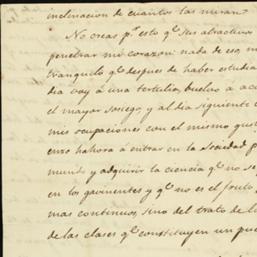 inclinacion de cuantos las miran.
No creas pr. esto qe. sus atractivo
penetrar mi corazon: nada de eso, m
tranquilo qe. despues de haber estudia
dia voy á una tertulia, buelvo a aco
el mayor sosiego, y al dia siguiente
mis ocupaciones con el mismo gust
enzo hahora á entrar en la Sociedad p
mundo y adquirir la ciencia qe. no se
en los gavinentes y qe. no es el fruto
mas continuos, sino del trato de l
de las clases qe. constituyen un pue